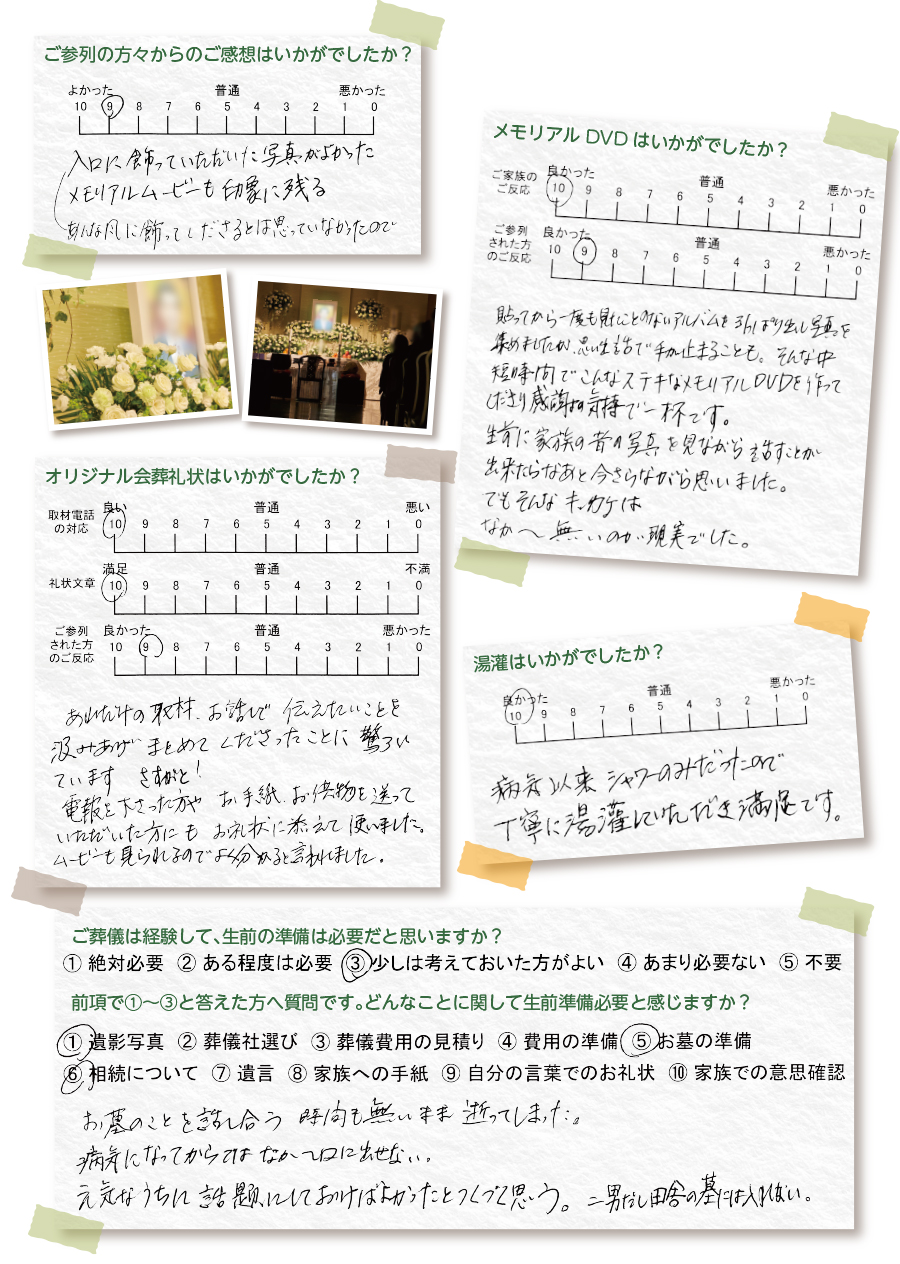 ご参列の方々からのご感想はいかがでしたか？
よかった 普通 悪かった
10 9 8 7 6 5 4 3 2 1 0
入口に飾っていただいた写真がよかった
メモリアルムービーも印象に残る
あんな風に飾ってくださるとは思っていなかったので
メモリアルDVDはいかがでしたか？
ご家族の
ご反応
良かった 普通 悪かった
10 9 8 7 6 5 4 3 2 1 0
ご参列
された方
のご反応
良かった 普通 悪かった
10 9 8 7 6 5 4 3 2 1 0
貼ってから一度も見たことのないアルバムを引っぱり出し写真を
集めましたが、思い出話で手が止まることも。そんな中
短時間でこんなステキなメモリアルDVDを作って
くださり感謝の気持で一杯です。
生前に家族の昔の写真を見ながら話すことが
出来たらなあと今さらながら思いました。
でもそんなキッカケは
なか〜無いのが現実でした。
オリジナル会葬礼状はいかがでしたか？
取材電話
の対応
良い 普通 悪い
10 9 8 7 6 5 4 3 2 1 0
礼状文章
満足 普通 不満
10 9 8 7 6 5 4 3 2 1 0
ご参列
された方
のご反応
良かった 普通 悪かった
10 9 8 7 6 5 4 3 2 1 0
あれだけの取材、お話しで 伝えたいことを
汲みあげ まとめて くださったことに 驚ろい
ています さすがと！
電報を下さった方や お手紙、お供物を送って
いただいた方にも お礼状に添えて使いました。
ムービーも見られるのでよく分かると言われました。
湯灌はいかがでしたか？
良かった 普通 悪かった
10 9 8 7 6 5 4 3 2 1 0
病気以来 シャワーのみだったので
丁寧に湯灌していただき満足です。
ご葬儀は経験して、生前の準備は必要だと思いますか？
① 絶対必要 ② ある程度は必要 ③ 少しは考えておいた方がよい ④ あまり必要ない ⑤ 不要
前項で①〜③と答えた方へ質問です。どんなことに関して生前準備必要と感じますか？
① 遺影写真 ② 葬儀社選び ③ 葬儀費用の見積り ④ 費用の準備 ⑤ お墓の準備
⑥ 相続について ⑦ 遺言 ⑧ 家族への手紙 ⑨ 自分の言葉でのお礼状 ⑩ 家族での意思確認
お墓のことを話し合う 時間も無いまま 逝ってしまった。
病気になってからではなか〜口に出せない。
元気なうちに 話題にしておけばよかったとつくづく思う。二男だし田舎の墓には入れない。